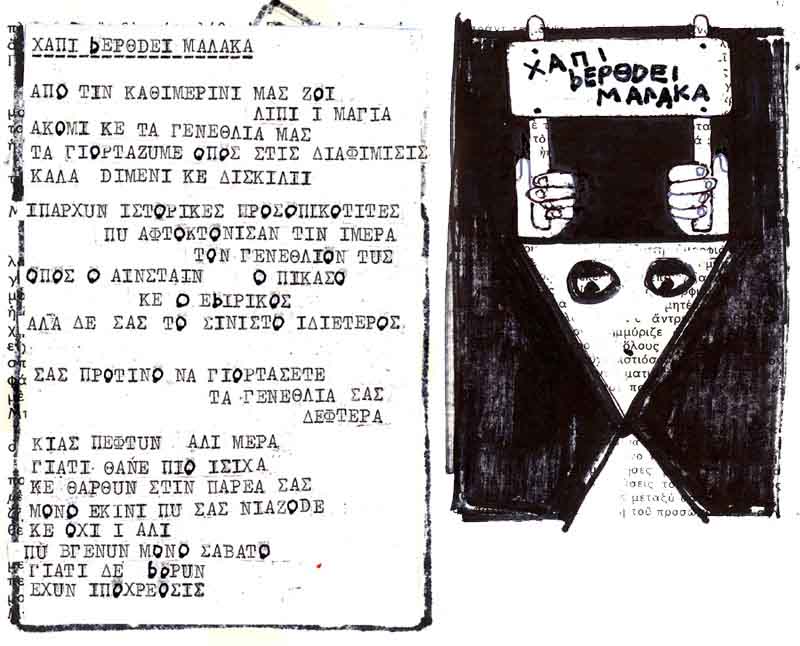 ΧΑΠΙ bΕΡΘDΕΙ ΜΑΛΑΚΑ
ΑΠΟ ΤΙΝ ΚΑΘΙΜΕΡΙΝΙ ΜΑΣ ΖΟΙ
ΛΙΠΙ Ι ΜΑΓΙΑ
ΑΚΟΜΙ ΚΕ ΤΑ ΓΕΝΕΘΛΙΑ ΜΑΣ
ΤΑ ΓΙΟΡΤΑΖΥΜΕ ΟΠΟΣ ΣΤΙΣ ΔΙΑΦΙΜΙΣΙΣ
ΚΑΛΑ DIMENI ΚΕ ΔΙΣΚΙΛΙΙ
ΙΠΑΡΧΥΝ ΙΣΤΟΡΙΚΕΣ ΠΡΟΣΟΠΙΚΟΤΙΤΕΣ
ΠΥ ΑΦΤΟΚΤΟΝΙΣΑΝ ΤΙΝ ΙΜΕΡΑ
ΤΟΝ ΓΕΝΕΘΛΙΟΝ ΤΥΣ
ΟΠΟΣ Ο ΑΙΝΣΤΑΙΝ Ο ΠΙΚΑΣΟ
ΚΕ Ο ΕbΙΡΙΚΟΣ
ΑΛΑ ΔΕ ΣΑΣ ΤΟ ΣΙΝΙΣΤΟ ΙΔΙΕΤΕΡΟΣ
ΣΑΣ ΠΡΟΤΙΝΟ ΝΑ ΓΙΟΡΤΑΣΕΤΕ
ΤΑ ΓΕΝΕΘΛΙΑ ΣΑΣ
ΔΕΦΤΕΡΑ
ΚΙΑΣ ΠΕΦΤΥΝ ΑΛΙ ΜΕΡΑ
ΓΙΑΤΙ ΘΑΝΕ ΠΙΟ ΙΣΙΧΑ
ΚΕ ΘΑΡΘΥΝ ΣΤΙΝ ΠΑΡΕΑ ΣΑΣ
ΜΟΝΟ ΕΚΙΝΙ ΠΥ ΣΑΣ ΝΙΑΖΟDΕ
ΚΕ ΟΧΙ Ι ΑΛΙ
ΠΥ ΒΓΕΝΥΝ ΜΟΝΟ ΣΑΒΑΤΟ
ΓΙΑΤΙ ΔΕ bΟΡΥΝ
ΕΧΥΝ ΙΠΟΧΡΕΟΣΙΣ
ΧΑΠΙ
bΕΡΘDΕΙ
ΜΑΛΑΚΑ
μμόριζε
ὅλους
μεταξὺ
τοῦ προσώ